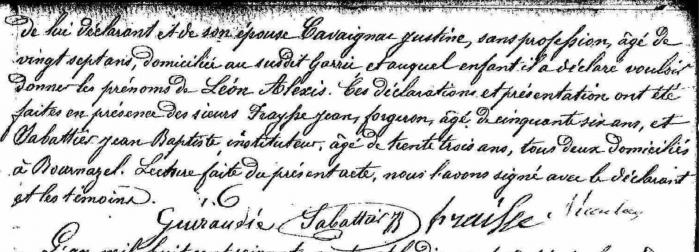 de lui déclarant et de son épouse Cavaignac Justine, sans profession, âgé de
vingt sept ans, domiciliée au susdit Garric et auquel enfant il a déclaré vouloir
donner les prénoms de Léon Alexis. Ces déclarations et présentation ont été
faites en présence des sieurs Fraysse Jean, forgeron, âgé de cinquante six ans, et
Sabattier Jean Baptiste instituteur, âgé de trente trois ans, tous deux domiciliés
à Bournazel. Lecture faite du présent acte, nous l'avons signé avec le déclarant
et les témoins.
Guiraudie Sabattier fraisse
L'an mil huit cent